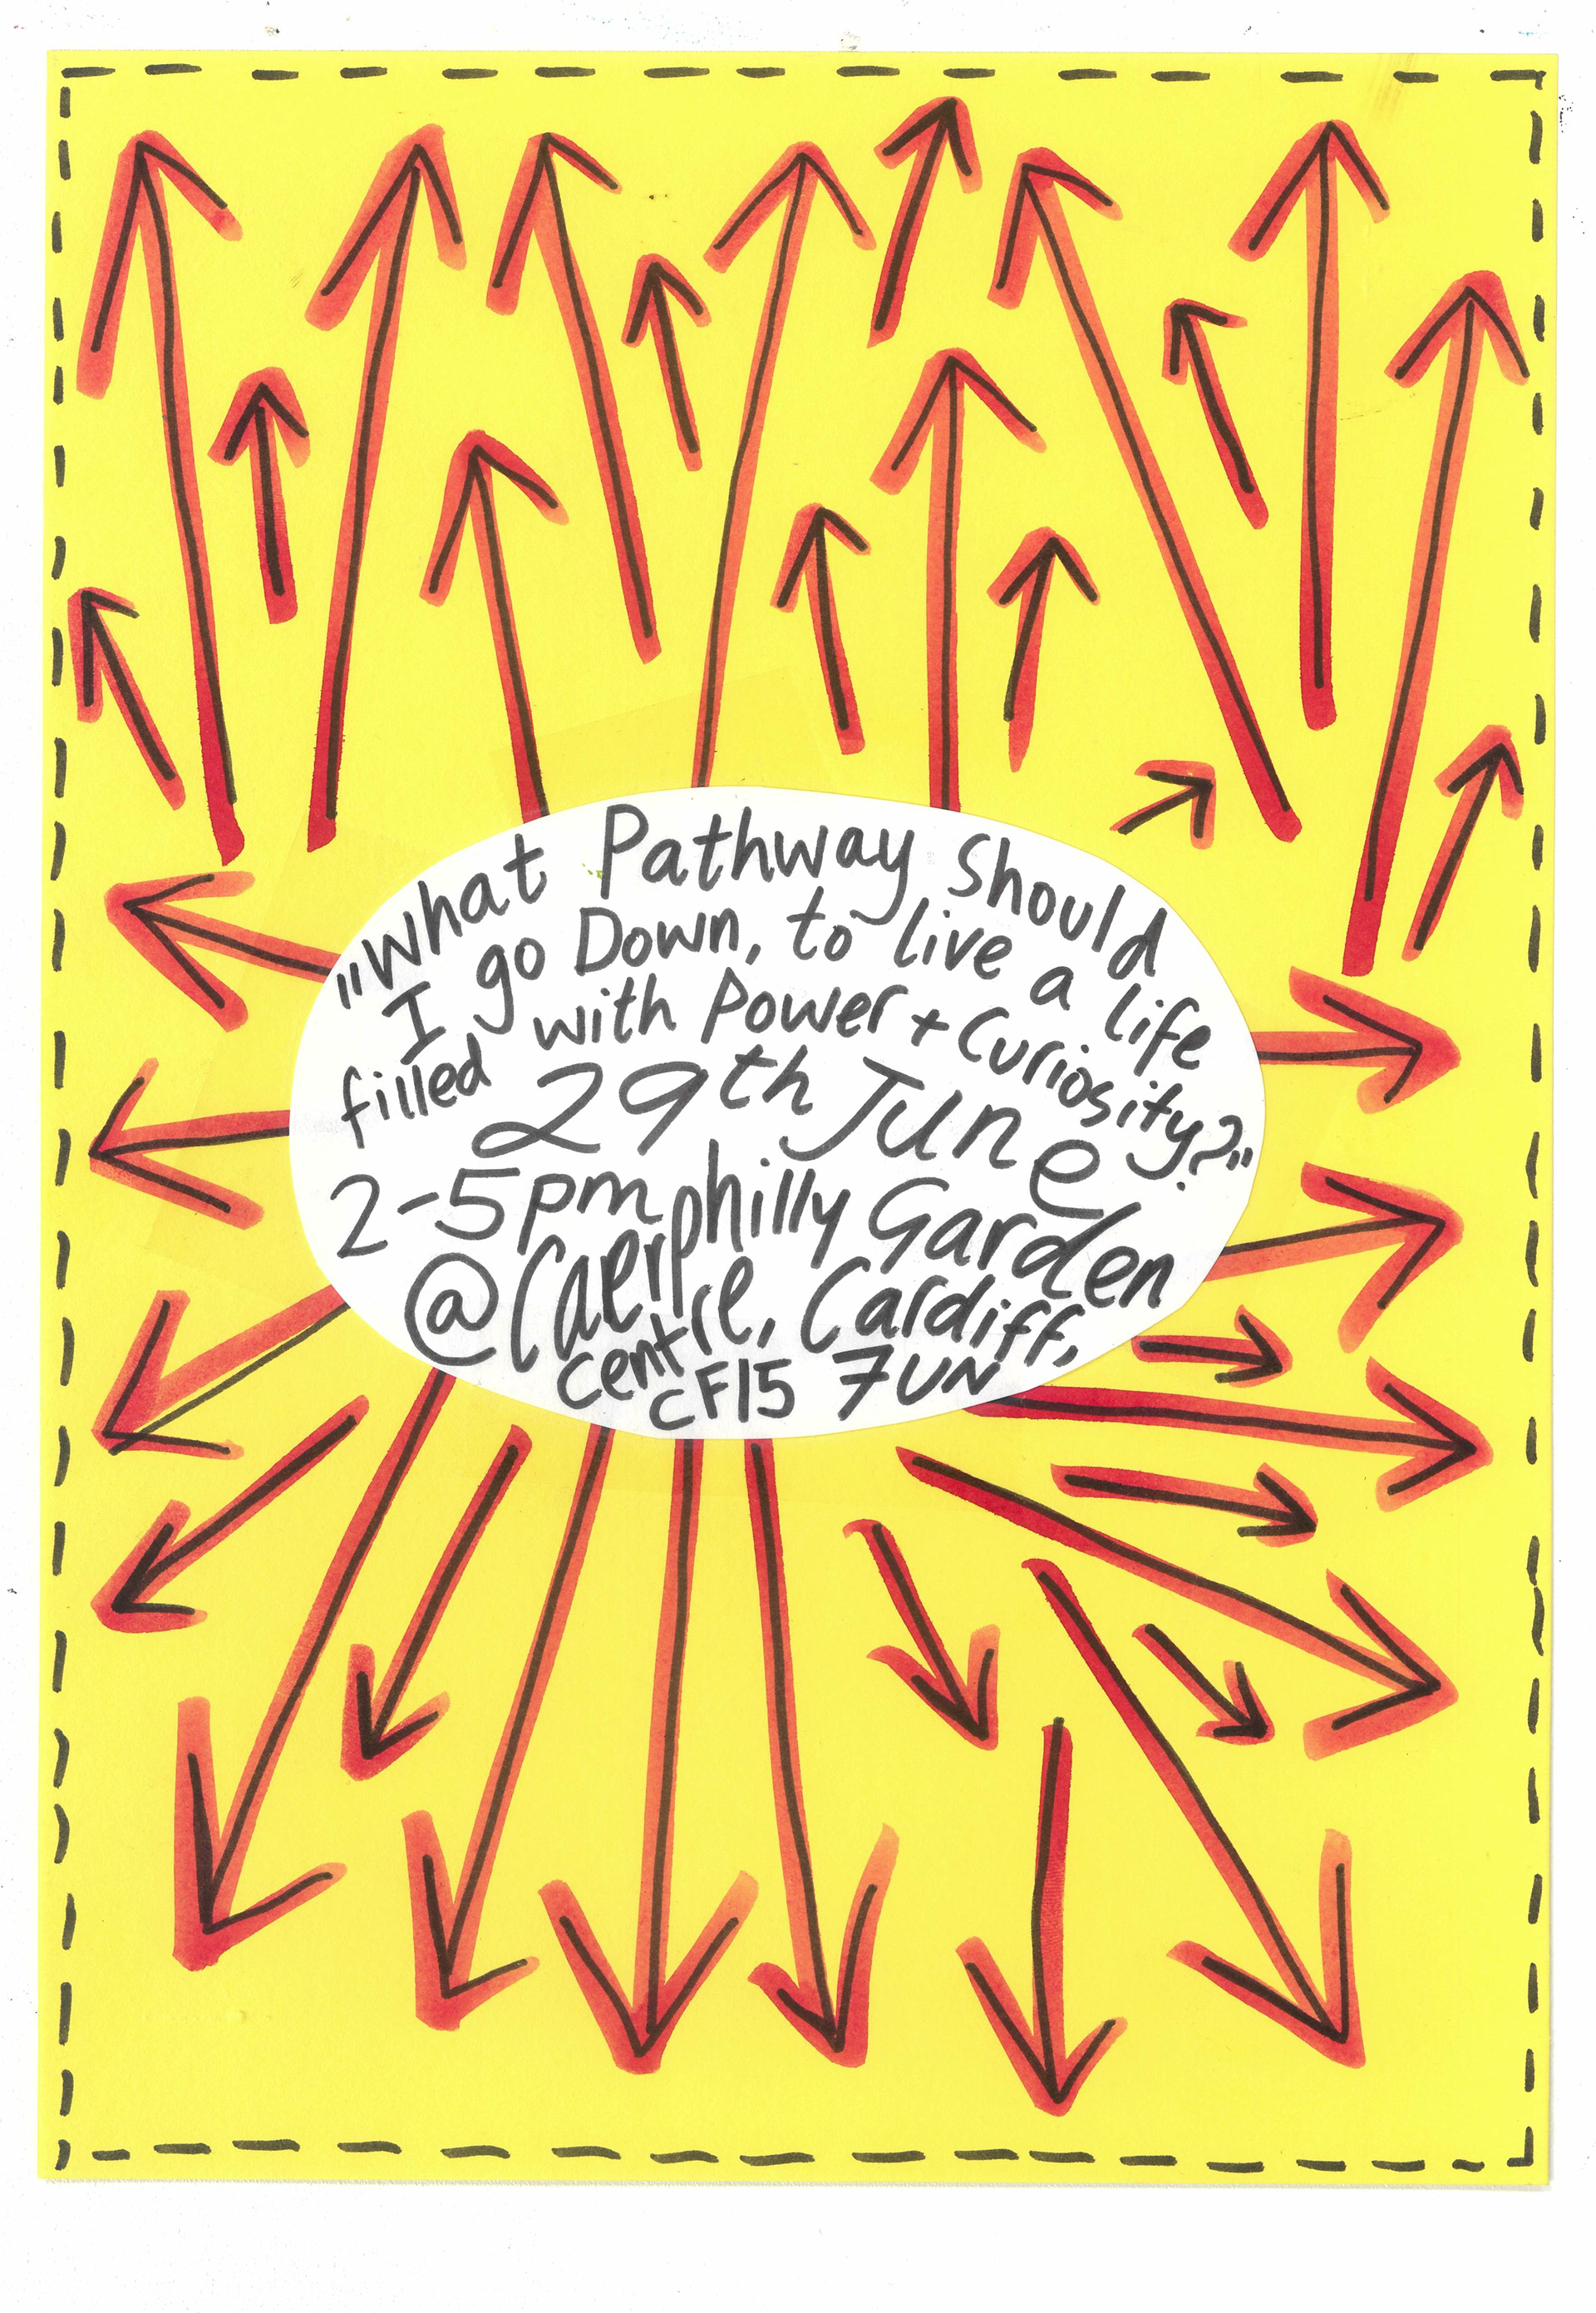 "What Pathway Should
I go Down, to live a life
filled with Power + Curiosity?"
29th June
2-5pm
@ Caerphilly Garden
Centre, Cardiff,
CF15 7UN